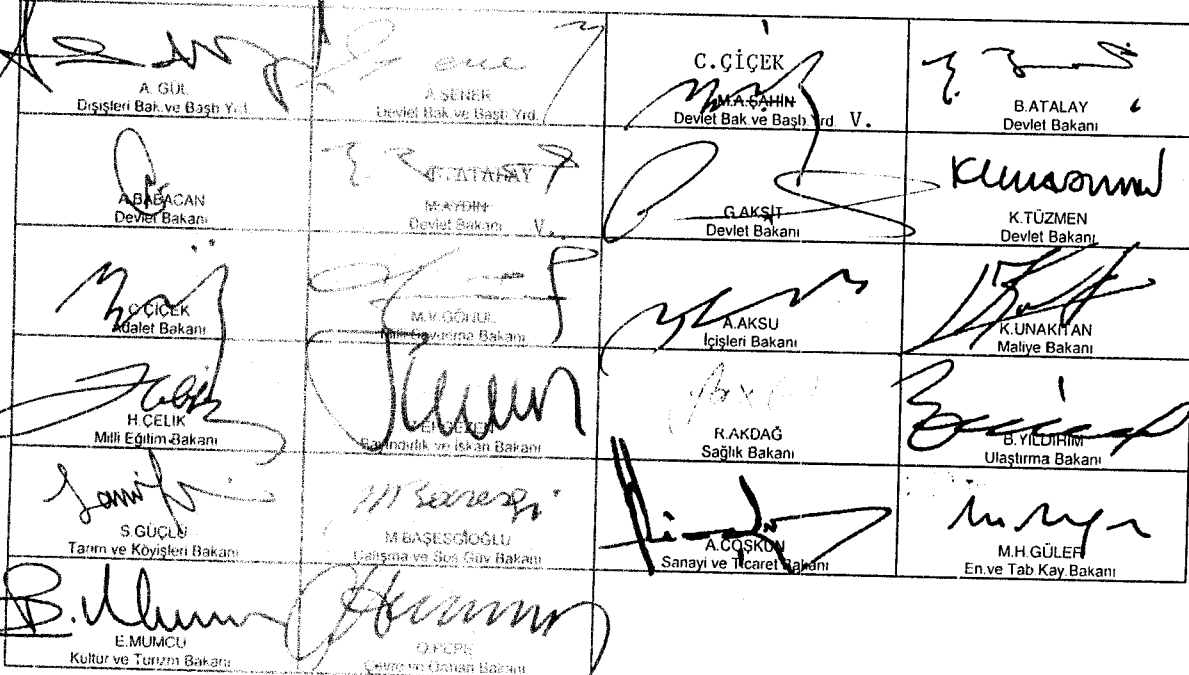 A. GÜL
Dışişleri Bak.ve Başb Yrd.
A.ŞENER
Devlet Bak.ve Başb.Yrd.
C.ÇİÇEK
M.A.ŞAHİN
Devlet Bak.ve Başb.Yrd. V.
B.ATALAY
Devlet Bakanı
A.BABACAN
Devlet Bakanı
B.ATALAY
M.AYDIN
Devlet Bakanı V.
G.AKŞİT
Devlet Bakanı
K.TÜZMEN
Devlet Bakanı
C.ÇİÇEK
Adalet Bakanı
M.V.GÖNÜL
Milli Savunma Bakanı
A.AKSU
İçişleri Bakanı
K.UNAKITAN
Maliye Bakanı
H.ÇELİK
Milli Eğitim Bakanı
Bayındırlık ve İskan Bakanı
R.AKDAĞ
Sağlık Bakanı
B.YILDIRIM
Ulaştırma Bakanı
S.GÜÇLÜ
Tarım ve Köyişleri Bakanı
M.BAŞESGİOĞLU
Çalışma ve Sos Güv Bakanı
A.COŞKUN
Sanayi ve Ticaret Bakanı
M.H.GÜLER
En.ve Tab Kay.Bakanı
E.MUMCU
Kültür ve Turizm Bakanı
O.PEPE
Çevre ve Orman Bakanı